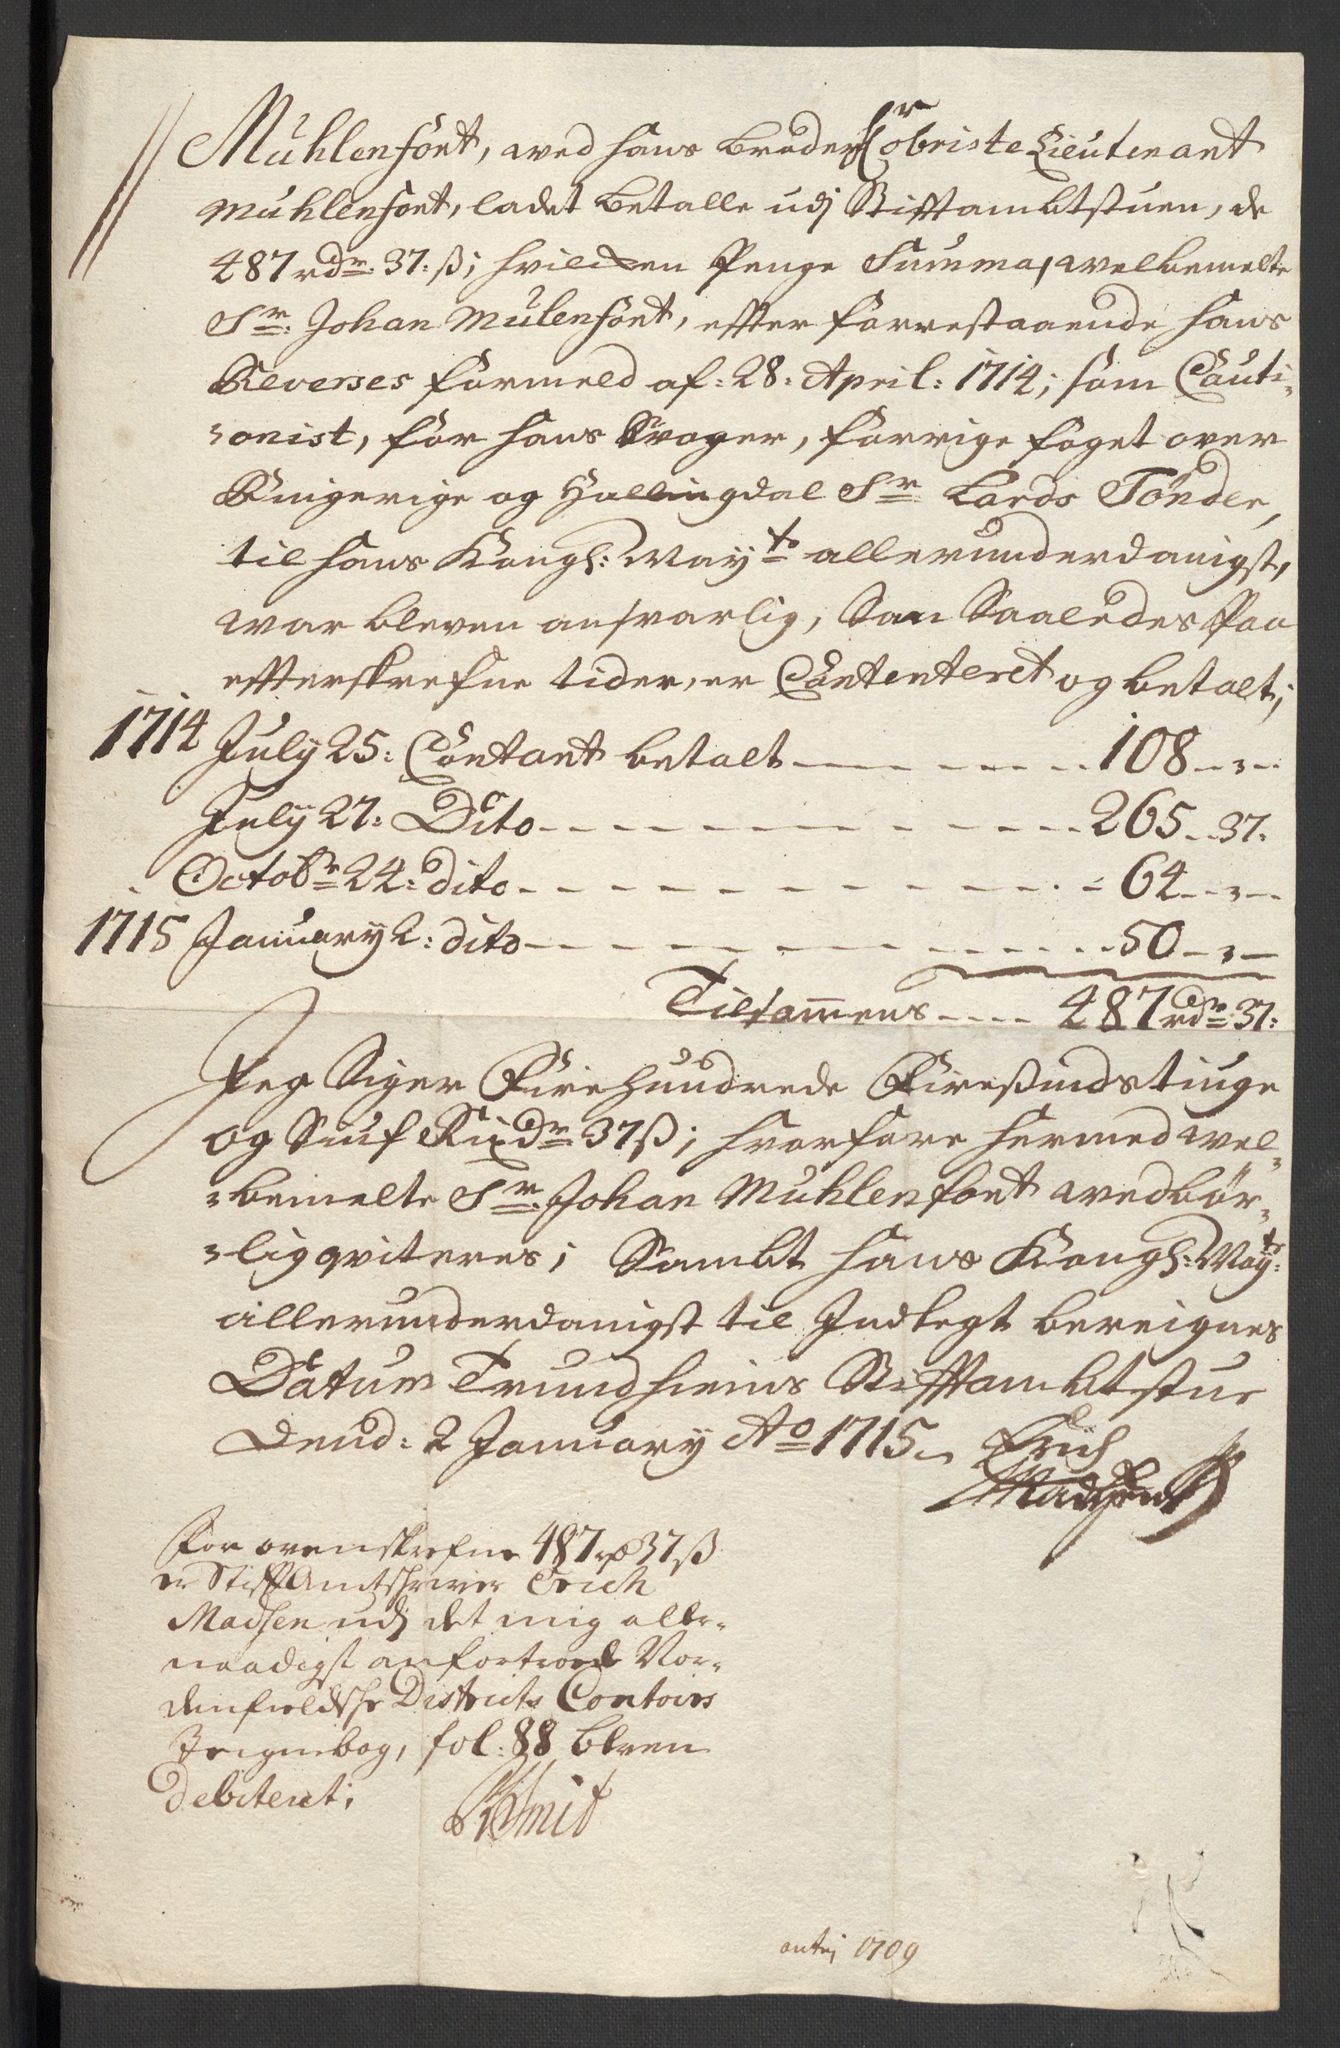 Muhlenfort, wed hans broder Hr obriste Lieutenant
Muhlenfort, ladet betalle udj Stiftambtstuen, de
487 rdr. 37: ß; hvilcken Penge Summa, welbemelte
Sr. Johan Mulenfort, effter forrestaaende hans
Reverses formeld af: 28: April: 1714; som Cauti-
onist, for hans Svoger, forrige foget over
Ringerige og Hallingdal Sr Lards Tönder,
til hans Kongl: Mayts allerunderdanigst,
war bleven ansvarlig, Som Saaledes Paa
effterskrefne tider, er Contenteret og betalt;
1714 July 25: Contant betalt 108 - " -
July 27: Dito 265 - 37:
Octobr 24: dito 64 - " -
1715 January 2: dito 50 - " -
Tilsammens 487 rdr 37:
Jeg Siger Firehundrede Firesindstiuge
og Siuf Rixdr 37 ß; hvorfore hermed wel-
bemelte Sr. Johan Muhlenfort wedbör-
lig qviteres; Sambt hans Kongl: Mayts:
allerunderdanigst til Indtegt bereignes
Datum Trundhiems Stifftambtstue
Dend: 2 January Ao 1715
Erich
Madssen
For ovenskrefne 487 rd 37 ß
er StifftAmtschriver Erich
Madsen udj det mig aller-
naadigst anfortroede Nor-
denfieldsche Districts Contoirs
Reignebog, fol: 88 bleven
Debiteret;
Smit
antj 1709